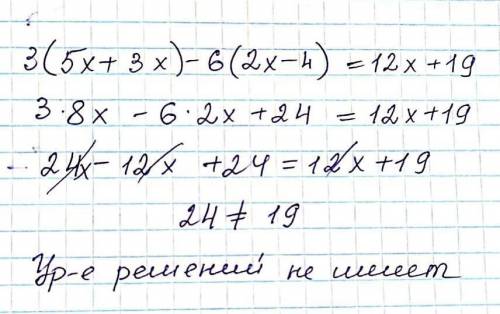 3(5x+3x)-6(2x-4) = 12x+19
3·8x - 6·2x + 24 = 12x+19
24x - 12x + 24 = 12x + 19
24 ≠ 19
Ур-е решений не имеет